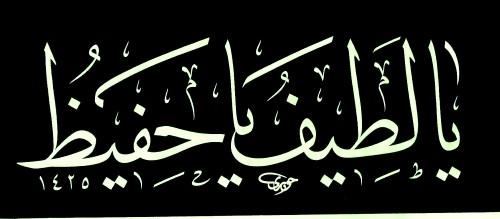 يا لطيف يا حفيظ
١٤٢٥